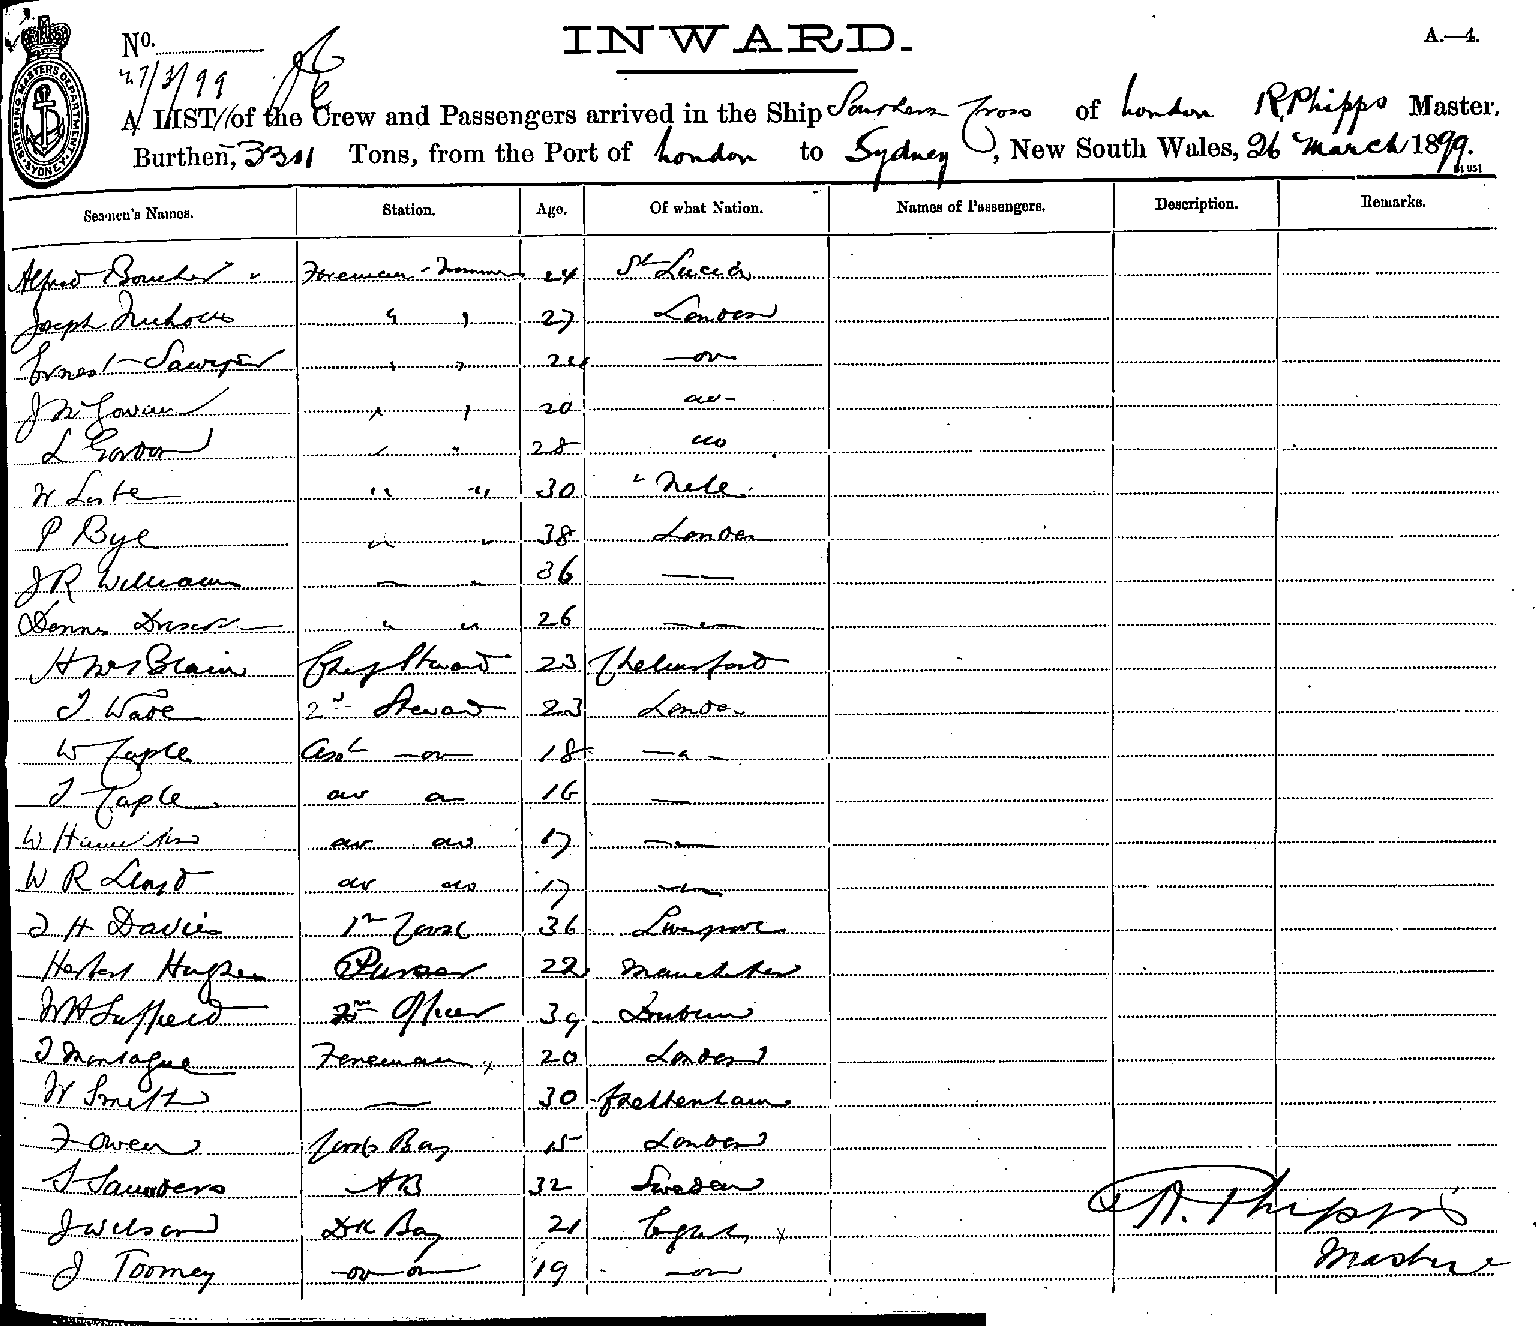 INWARD.
A.—4.
No.
27/3/99
A LIST of the Crew and Passengers arrived in the Ship Southern Cross of London R. Phipps Master,
Burthen, Tons, from the Port of London to Sydney, New South Wales, 26 March 1899.
SHIPPING MASTER'S DEPARTMENT SYDNEY
Seamen's Names. Station. Age. Of what Nation. Names of Passengers. Description. Remarks.
Alfred Boucher " 24 St Lucia
Joseph 27 London
Ernest Sawyer 24 do
J McGowan 20 do
L Gordon 28 do
W 30
P Bye 38 London
J R Williams 36 —
Dennis 26 —
H McBlain Chief Steward 23 Chelmsford
T Wade 2nd Steward 23 London
W Asst do 18
T do do 16 —
W Hamilton do do 17 —
W R Lloyd do do 17 —
T H Davies 1st Cook 36 Liverpool
Herbert Hughes Purser 22 Manchester
W H 2nd Officer 39
T Montague 20 London
W Smith — 30 Cheltenham
F Owen 15 London
S Saunders AB 32 Sweden
J Wilson Dk Boy 21 English x
J Toomey do do 19 do
R. Phipps
Master